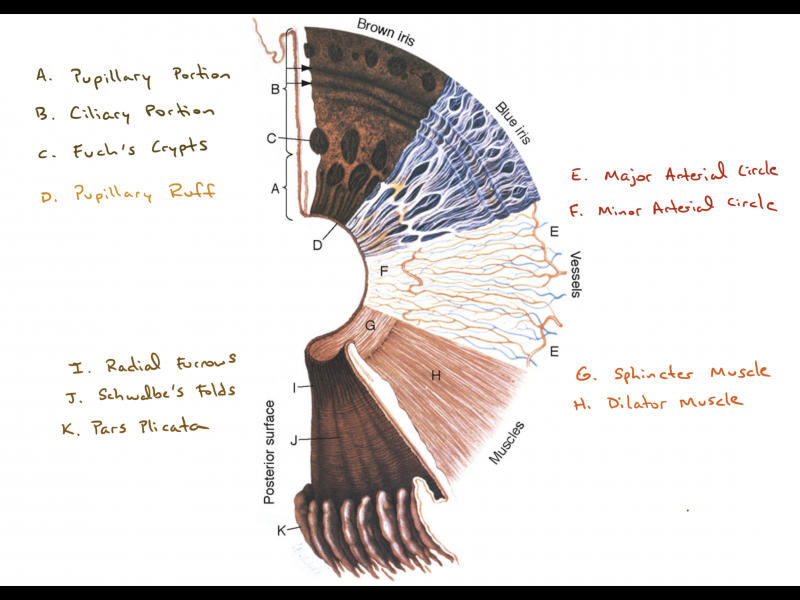 A. Pupillary Portion
B. Ciliary Portion
C. Fuch's Crypts
D. Pupillary Ruff
Brown iris
Blue iris
B
C
A
D
E. Major Arterial Circle
F. Minor Arterial Circle
E
F
Vessels
E
G
H
Muscles
I. Radial Furrows
J. Schwalbe's Folds
K. Pars Plicata
G. Sphincter Muscle
H. Dilator Muscle
I
J
K
Posterior surface